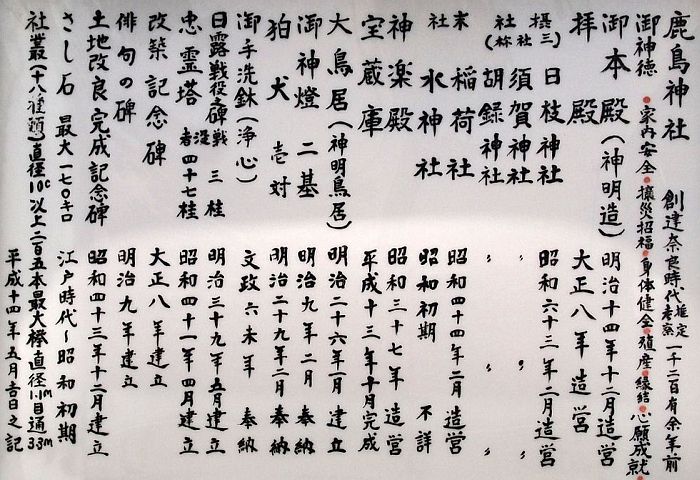 鹿島神社 創建奈良時代推定考察一千二百有余年前
御神徳・家内安全・攘災招福・身体健全・殖産・縁結・心願成就・
御本殿(神明造)明治十四年十二月造営
拝殿 大正八年造営
摂社(三社称) 日枝神社 昭和六十三年二月造営
須賀神社 〃 〃 〃
胡録神社 〃 〃 〃
末社 稲荷社 昭和四十四年二月造営
水神社 昭和初期 不詳
神楽殿 昭和三十七年 造営
宝蔵庫 平成十三年十月完成
大鳥居(神明鳥居)明治二十六年一月建立
御神燈 二基 明治九年二月 奉納
狛犬 壱対 明治二十九年二月奉納
御手洗鉢(浄心) 文政六未年 奉納
日露戦役之碑 戦没者 三桂 明治三十九年五月建立
忠霊塔 四十七桂 昭和四十一年四月建立
改築記念碑 大正八年建立
俳句の碑 明治九年建立
土地改良完成記念碑 昭和四十三年十二月建立
さし石 最大一七〇キロ 江戸時代~昭和初期
社叢(十八種類)直径10c以上二百五本最大欅直径1.1m目通3.3m
平成十四年五月吉日之記